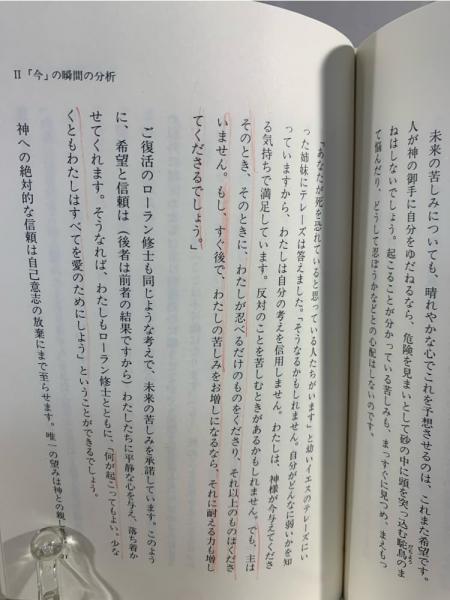 未来の苦しみについても、晴れやかな心でこれを予想させるのは、これまた希望です。
人が神の御手に自分をゆだねるなら、危険を見まいとして砂の中に頭を突っ込む駝鳥のま
ねはしないでしょう。起こることが分かっている苦しみも、まっすぐに見つめ、まえもっ
て悩んだり、どうして忍ぼうかなどとの心配はしないのです。
「あなたが死を恐れていると思っている人たちがいます」と幼いイエスのテレーズにい
った姉妹にテレーズは答えました。「そうなるかもしれません。自分がどんなに弱いかを知
っていますから、わたしは自分の考えを信用しません。わたしは、神様が今与えてくださ
る気持ちで満足しています。反対のことを苦しむときがあるかもしれません。でも、主は
そのとき、そのときに、わたしが忍べるだけのものをくださり、それ以上のものはくださ
いません。もし、すぐ後で、わたしの苦しみをお増しになるなら、それに耐える力も増し
てくださるでしょう。」
ご復活のローラン修士も同じような考えで、未来の苦しみを承諾しています。このよう
に、希望と信頼は（後者は前者の結果ですから）わたしたちに平静な心を与え、落ち着か
せてくれます。そうなれば、わたしもローラン修士とともに、「何が起こってもよい。少な
くともわたしはすべてを愛のためにしよう」ということができるでしょう。
神への絶対的な信頼は自己意志の放棄にまで至らせます。唯一の望みは神との親し
II 「今」の瞬間の分析